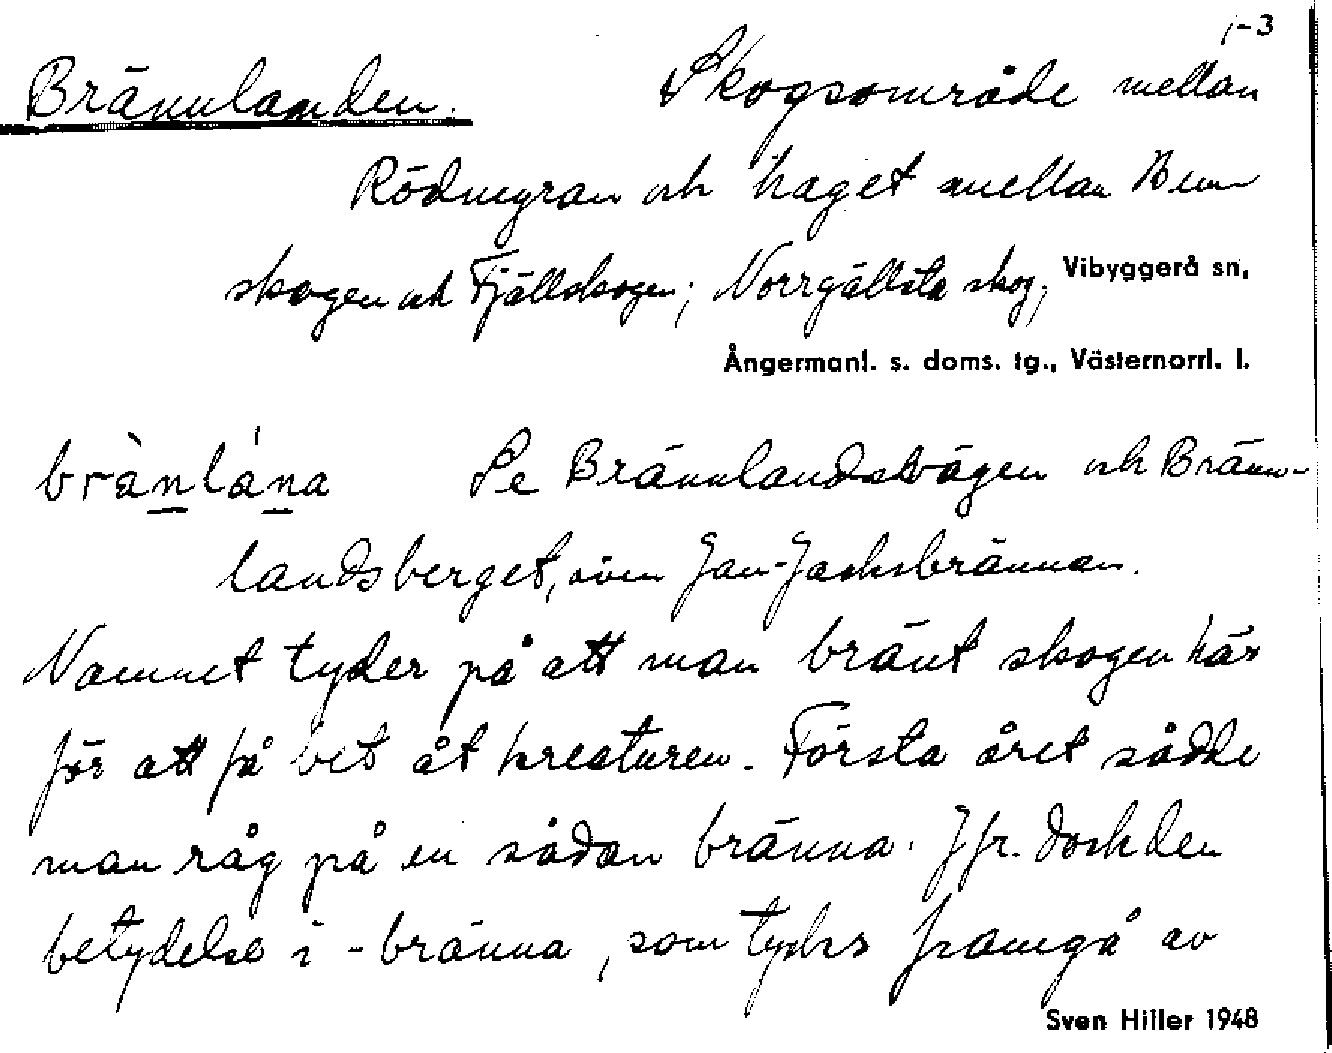 1-3
Brännlanden. Skogsområde mellan
Rödmyran och haget mellan Hem
skogen och Fjällskogen; Norrgällsta skog, Vibyggerå sn,
Ångermanl. s. doms. tg., Västernorrl. l.
brànlána Se Brännlandsvägen och Bränn-
landsberget, även Jan-Jacksbrännan.
Namnet tyder på att man bränt skogen här
för att få bet åt kreaturen. Första året sådde
man råg på en sådan bränna. Jfr. dock den
betydelse i -bränna, som tycks framgå av
Sven Hiller 1948